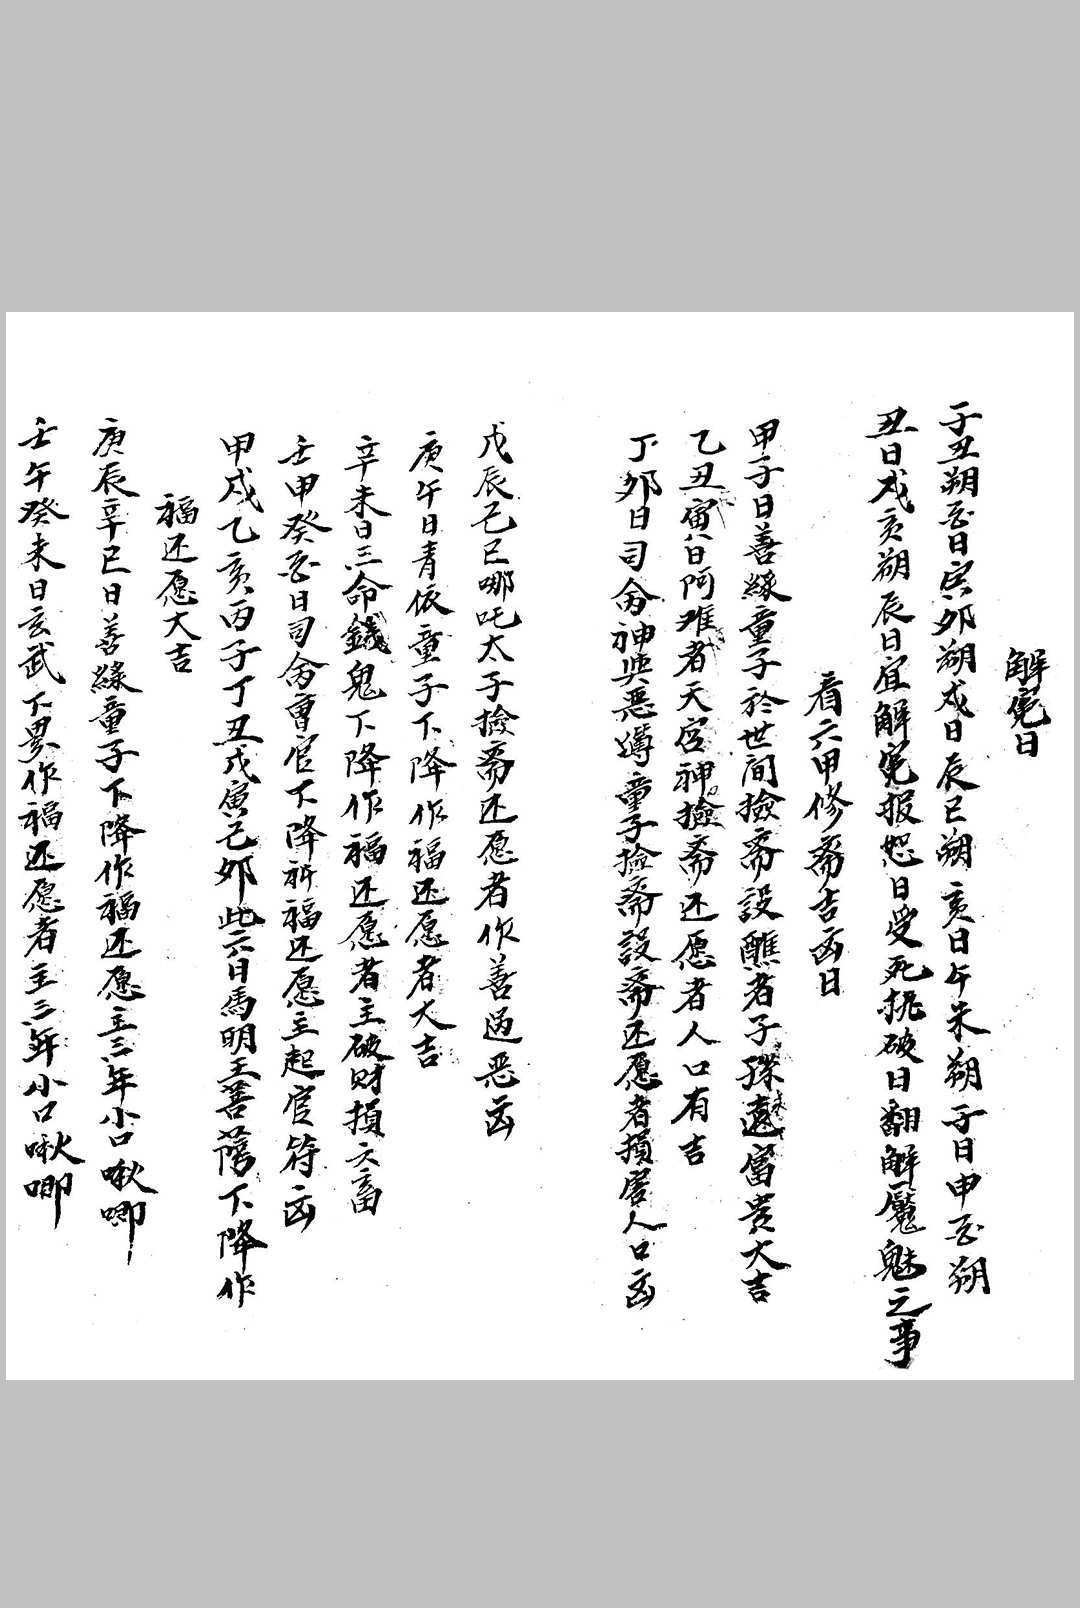 解冤日
子丑朔酉日寅卯朔戍日辰巳朔亥日午未朔子日申酉朔
丑日戍亥朔辰日宜解冤报恕日受死挑破日翻解魘魅之事
看六甲修斋吉凶日
甲子日善緣童子於世间撿斋設醮者子孫遠富贵大吉
乙丑寅日阿难者天宫神撿斋还愿者人口有吉
丁卯日司命神與恶童子撿斋設斋还愿者損害人口凶
戊辰己巳哪吒太子撿斋还愿者作善遇恶凶
庚午日青依童子下降作福还愿者大吉
辛未日三命鬼下降作福还愿者主破财損六畜
壬申癸酉日司命曹官下降祈福还愿主起官符凶
甲戍乙亥丙子丁丑戊寅己卯此六日馬明王善薩下降作
福还愿大吉
庚辰辛巳日善緣童子下降作福还愿主三年小口啾唧
壬午癸未日玄武下界作福还愿者主三年小口啾唧